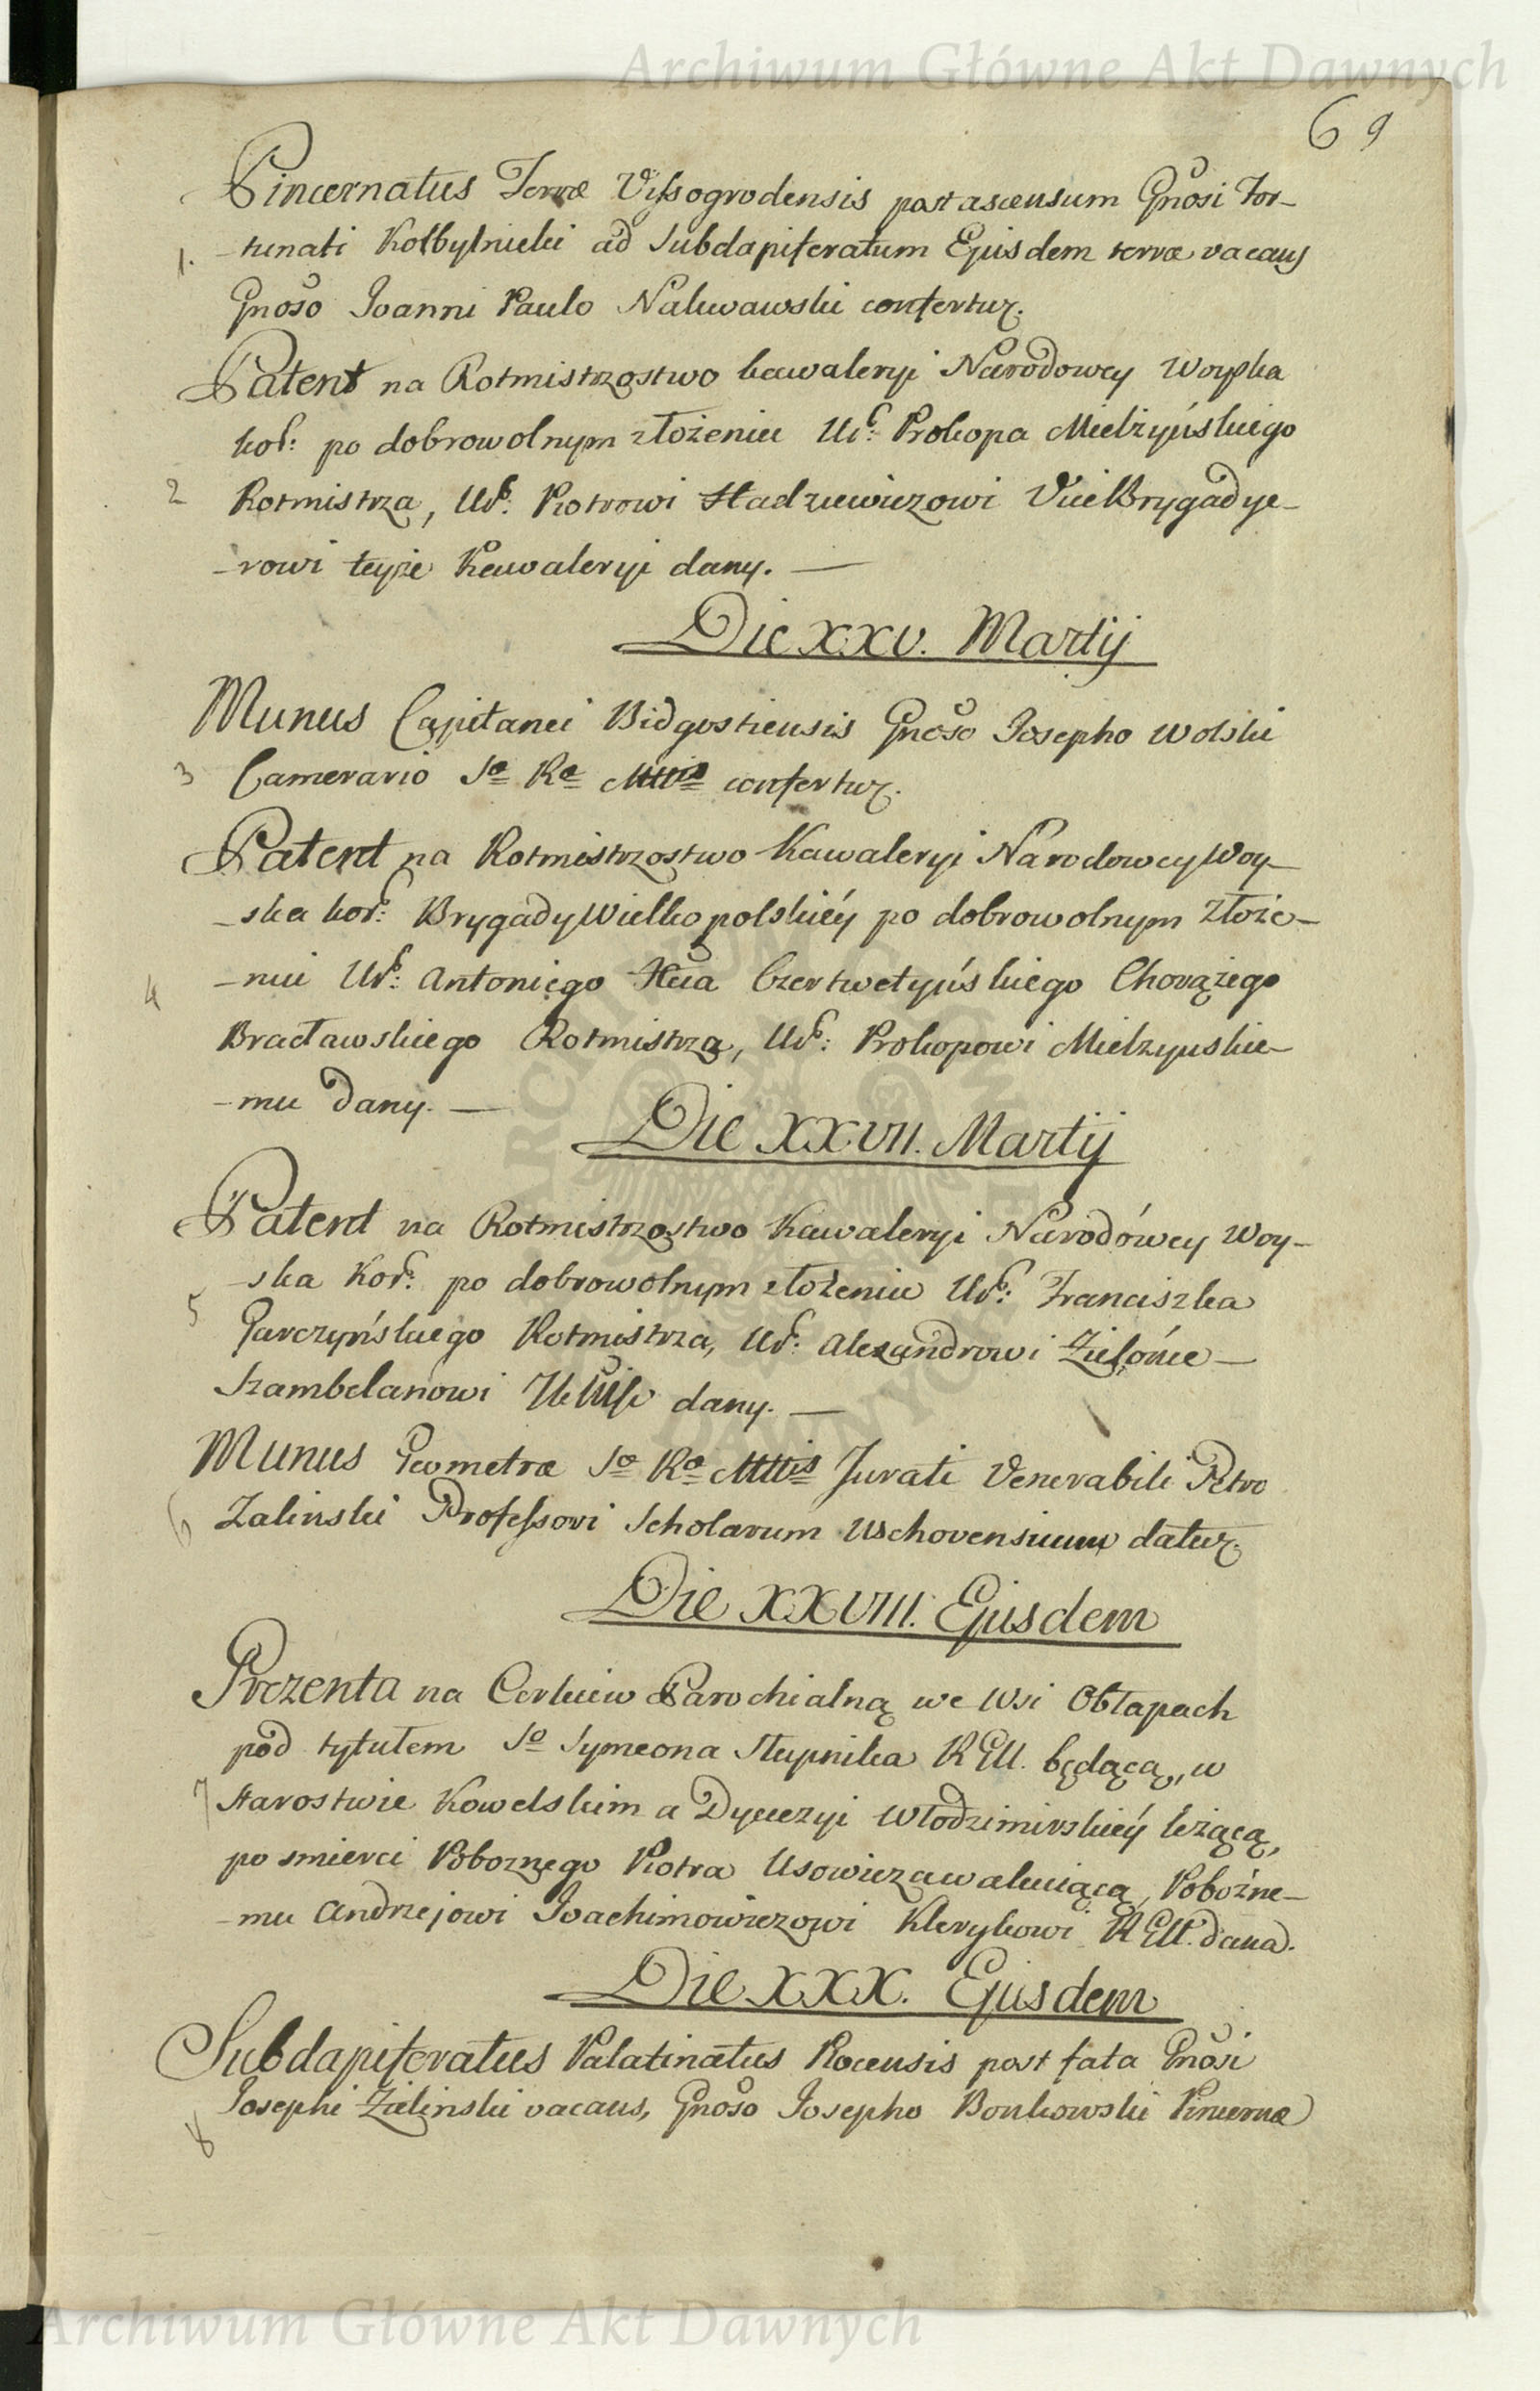 Archiwum Główne Akt Dawnych
69
Pincernatus Terræ Vissogrodensis post ascensum Gnosi For-
1. -tunati Kolbylnicki ad Subdapiferatum Ejusdem terræ vacans
Gnoso Joanni Paulo Nakwawski confertur.
Patent na Rotmistrzostwo kawaleryi Narodowey Woyska
kor: po dobrowolnym złożeniu Ur: Prokopa Mielżyńskiego
2 Rotmistrza, Ur: Piotrowi Hadziewiczowi ViceBrygadye-
-rowi teyże Kawaleryi dany. —
Die XXV. Martij
Munus Capitanei Bidgostiensis Gnoso Josepho Wolski
3 Camerario Sæ Ræ Mttis confertur.
Patent na Rotmistrzostwo Kawaleryi Narodowey Woy-
-ska kor: Brygady Wielkopolskiéy po dobrowolnym złoże-
4 -niu Ur: Antoniego Xcia Czertwetyńskiego Chorążego
Bracławskiego Rotmistrza, Ur: Prokopowi Mielżynskie-
-mu dany. —
Die XXVII. Martij
Patent na Rotmistrzostwo Kawaleryi Narodówey Woy-
-ska Kor: po dobrowolnym złożeniu Ur: Franciszka
5 Garczyńskiego Rotmistrza, Ur: Alexandrowi Zielónce —
Szambelanowi dany. —
Munus Geometræ Sæ Ræ Mttis Jurati Venerabili Petro
6 Zalinski Professori Scholarum Wschovensium datur.
Die XXVIII. Ejusdem
Prezenta na Cerkiew Parochialną we Wsi Obłapach
pod tytułem So Symeona Słupnika RGU. będącą, w
7 Starostwie Kowelskim a Dyecezyi Włodzimirskiéy leżącą,
po smierci Pobożnego Piotra Usowicza wakuiącą, Pobożne-
-mu Andrzejowi Joachimowiczowi Klerykowi RGU. dana.
Die XXX. Ejusdem
Subdapiferatus Palatinatus Plocensis post fata Gnosi
Josephi Zielinski vacans, Gnoso Josepho Bonkowski Pincernæ
8
Archiwum Główne Akt Dawnych